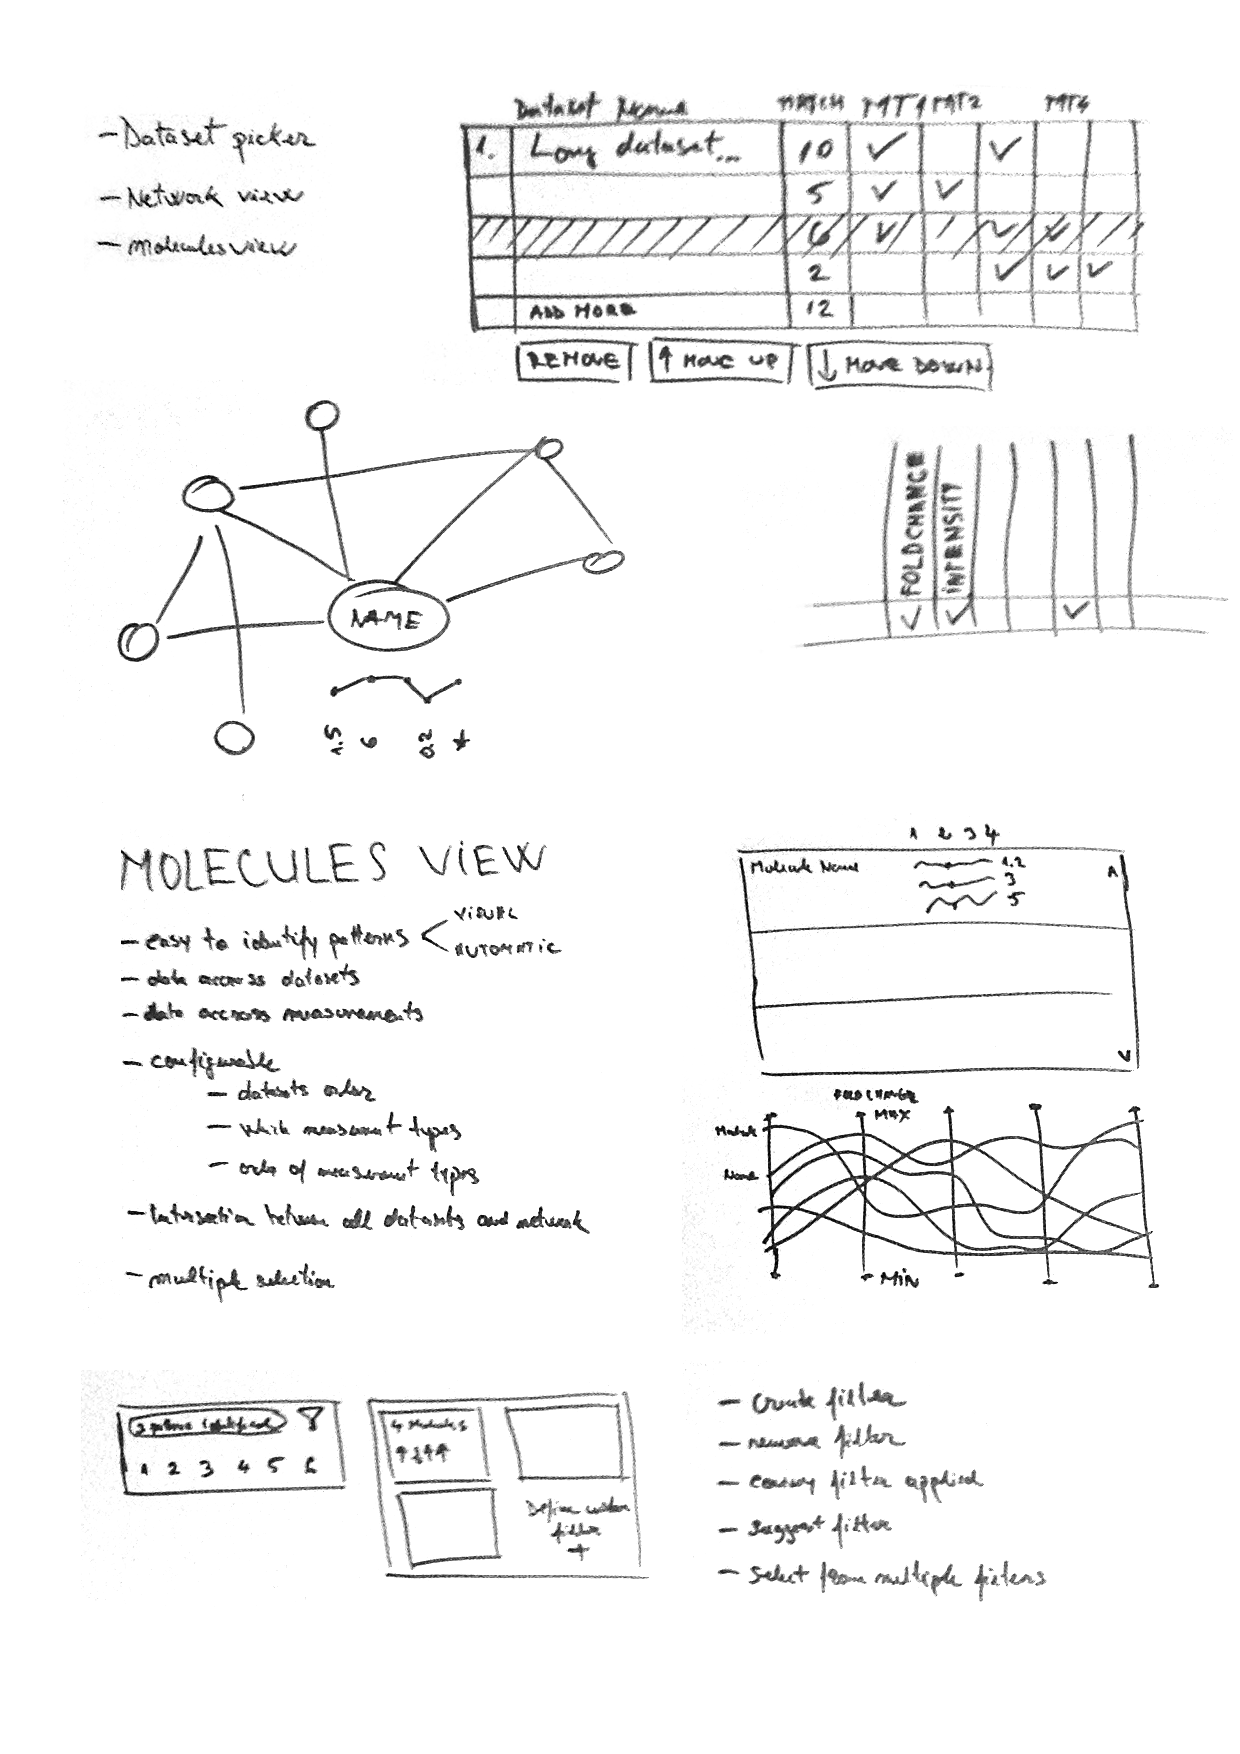 - Dataset picker
- Network view
- Molecules view
Dataset Name MATCH PAT1 PAT2 PAT4
1. Long dataset... 10 ✓ ✓
5 ✓ ✓
6 ✓ ✓ ✓
2 ✓ ✓ ✓
ADD MORE 12
REMOVE ↑ MOVE UP ↓ MOVE DOWN
NAME
1.5 6 0.2
FOLDCHANGE
INTENSITY
✓ ✓ ✓
MOLECULES VIEW
- easy to identify patterns
VISUAL
AUTOMATIC
- data accross datasets
- data accross measurements
- configurable
- datasets order
- which measurement types
- order of measurement types
- Intersection between all datasets and network
- multiple selection
1 2 3 4
Molecule Name 1.2
3
5
FOLDCHANGE
MAX
Molecule
Name
MIN
patterns identified
1 2 3 4 5 6
4 Molecules
↑↓↑↑
Define custom
filter
+
- Create filter
- remove filter
- convey filter applied
- Suggest filter
- Select from multiple filters